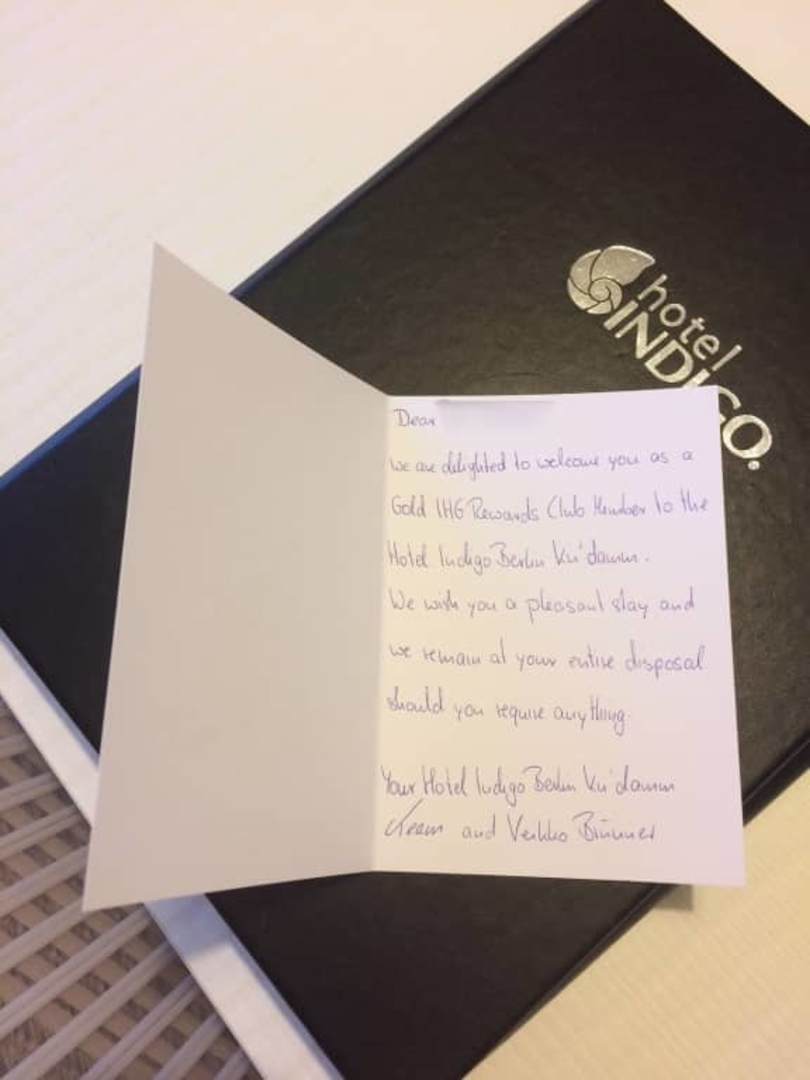 hotel
INDIGO.
Dear
we are delighted to welcome you as a
Gold IHG Rewards Club Member to the
Hotel Indigo Berlin Ku'damm.
We wish you a pleasant stay and
we remain at your entire disposal
should you require anything.
Your Hotel Indigo Berlin Ku'damm
Team and